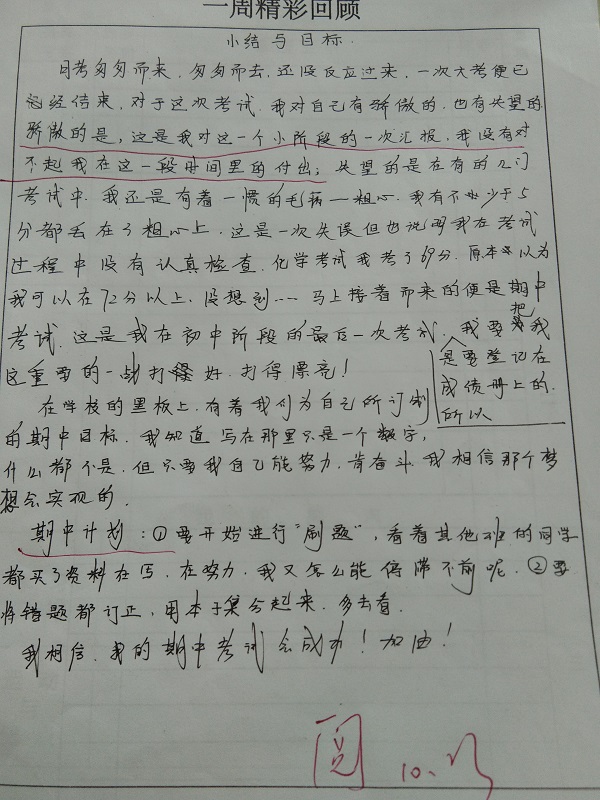 一周精彩回顾
小结与目标.
月考匆匆而来,匆匆而去,还没反应过来,一次大考便已
经结束,对于这次考试,我对自己有骄傲的,也有失望的
骄傲的是,这是我对这一个小阶段的一次汇报,我没有对
不起我在这一段时间里的付出;失望的是在有的几门
考试中,我还是有着一惯的毛病—粗心,我有不少于5
分都丢在了粗心上,这是一次失误但也说明我在考试
过程中没有认真检查,化学考试我考了69分,原本以为
我可以在72分以上,没想到……马上接着而来的便是期中
考试,这是我在初中阶段的最后一次考试,是要登记在成绩册上的,所以我要把我
这重要的一战打好,打得漂亮!
在学校的黑板上,有着我们为自己所订制
的期中目标,我知道写在那里只是一个数字,
什么都不是,但只要我自己能努力,肯奋斗,我相信那个梦
想会实现的.
期中计划:①要开始进行“刷题”,看着其他班的同学
都买了资料在写,在努力,我又怎么能停滞不前呢.②要
将错题都订正,用本子集合起来,多去看.
我相信,我的期中考试会成功!加油!
阅 10.